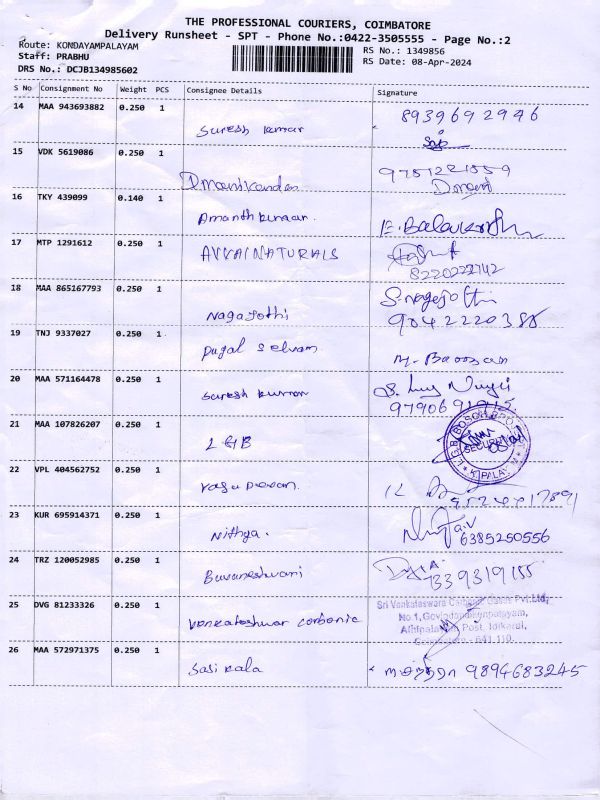 THE PROFESSIONAL COURIERS, COIMBATORE
Delivery Runsheet - SPT - Phone No.:0422-3505555 - Page No.:2
Route: KONDAYAMPALAYAM
Staff: PRABHU
DRS No.: DCJB134985602
RS No.: 1349856
RS Date: 08-Apr-2024
S No Consignment No Weight PCS Consignee Details Signature
14 MAA 943693882 0.250 1 Suresh kumar 8939692946
15 VDK 5619086 0.250 1 D.manikandan
16 TKY 439099 0.140 1
17 MTP 1291612 0.250 1 AVVAI NATURALS
8220222742
18 MAA 865167793 0.250 1 Nagajothi S.nagajothi
9042220388
19 TNJ 9337027 0.250 1 Pugal Selvam
20 MAA 571164478 0.250 1 Suresh kumar
21 MAA 107826207 0.250 1 LGB
SECURITY
22 VPL 404562752 0.250 1
23 KUR 695914371 0.250 1 Nithya.
6385250556
24 TRZ 120052985 0.250 1 Buvaneshwari
25 DVG 81233326 0.250 1 Venkateshwar carbonic
Sri Venkateswara Carbonic Gases Pvt.Ltd,
No 1,
Post, Idikarai,
Coimbatore - 641 110.
26 MAA 572971375 0.250 1 Sasi kala 9894683245